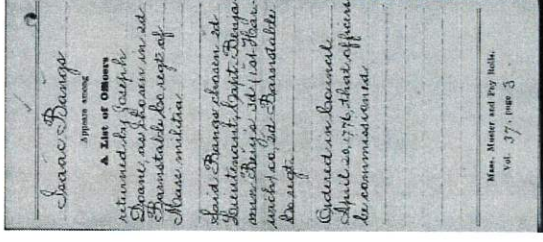 Isaac Bangs
Appears among
A List of Officers
returned by Joseph
Doane, as chosen in 2d
Barnstable Co. regt of
Mass. militia.
Said Bangs chosen 2d
Lieutenant, Capt. Benja
min Berry's 2d (1st Har-
wich) co., 2d Barnstable
Co. regt.
Ordered in Council
April 20, 1776, that officers
be commissioned.
Mass. Muster and Pay Rolls.
Vol. 37. page 3